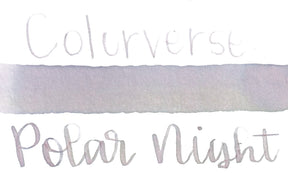 Colorverse
Polar Night